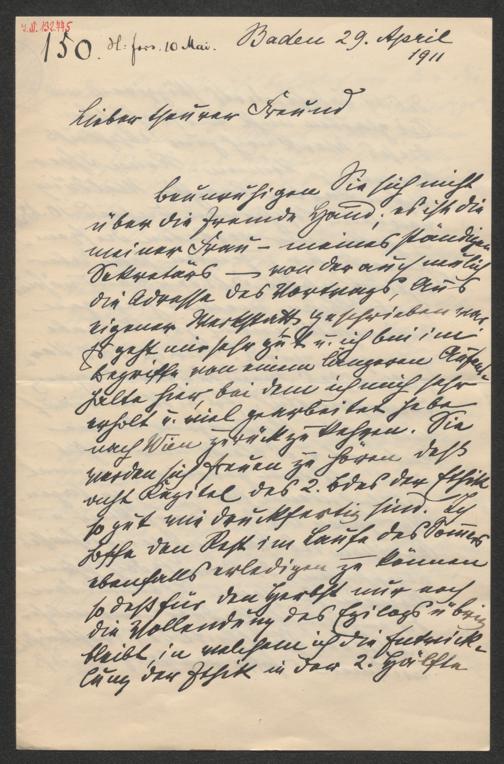 I. N. 132.445
150. H: fors. 10 Mai. Baden 29. April
1911
Lieber theurer Freund
Beunruhigen Sie sich nicht
über die fremde Hand; es ist die
meiner Frau – meines ständigen
Sekretärs – von der auch neulich
die Adresse des Vortrags, Aus
eigener Werkstatt, geschrieben war.
Es geht mir sehr gut u. ich bin im
Begriffe von einem längeren Aufent-
halte hier, bei dem ich mich sehr
erholt u. viel gearbeitet habe
nach Wien zurückzukehren. Sie
werden sich freuen zu hören daß
acht Kapitel des 2. Bdes der Ethik
so gut wie druckfertig sind. Ich
hoffe den Rest im Laufe des Sommers
ebenfalls erledigen zu können
so daß für den Herbst nur noch
die Vollendung des Epilogs übrig
bleibt, in welchem ich die Entwick-
lung der Ethik in der 2. Hälfte